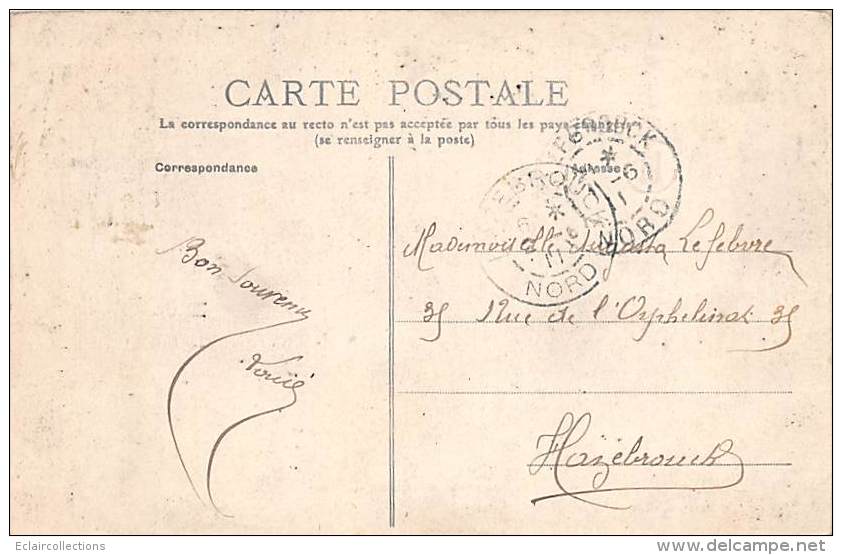 CARTE POSTALE
La correspondance au recto n'est pas acceptée par tous les pays
(se renseigner à la poste)
Correspondance
Adresse
HAZEBROUCK
NORD
HAZEBROUCK
NORD
Bon Souvenir
Mademoiselle Augusta Lefebvre
35 Rue de l'Orphelinat 35
Hazebrouck
Eclaircollections
www.delcampe.net